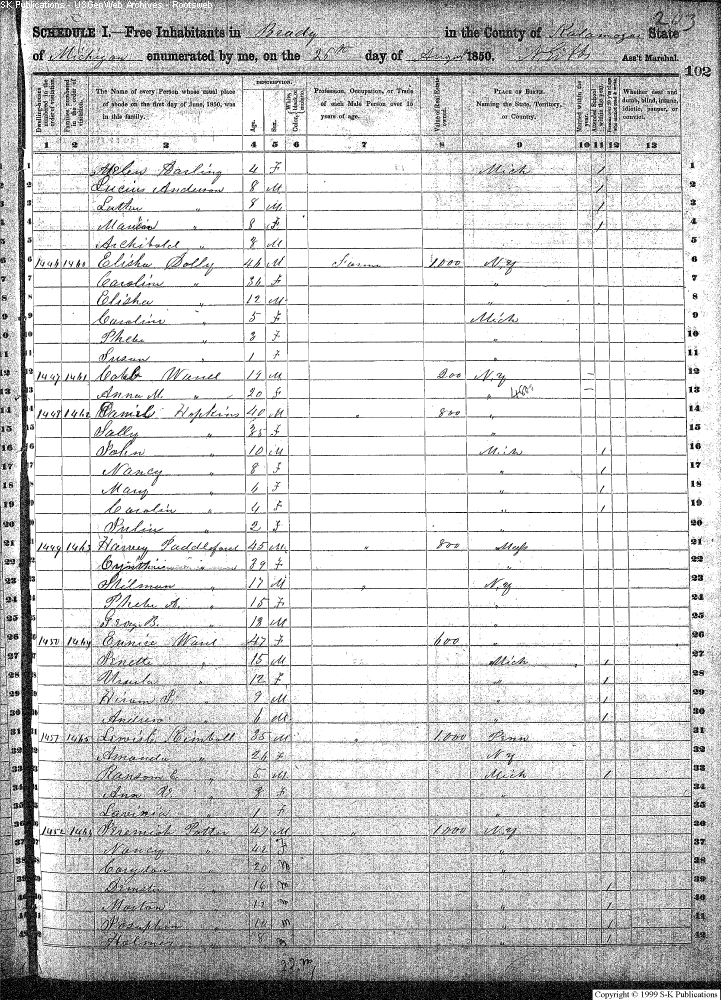 S-K Publications - USGenWeb Archives - Rootsweb
203
SCHEDULE I.—Free Inhabitants in Brady in the County of Kalamazoo State
of Michigan enumerated by me, on the 26th day of August 1850. Ass't Marshal.
102
DESCRIPTION.
Dwelling-houses numbered in the order of visitation. Families numbered in the order of visitation. The Name of every Person whose usual place of abode on the first day of June, 1850, was in this family. Age. Sex. Color, White, black, or mulatto. Profession, Occupation, or Trade of each Male Person over 15 years of age. Value of Real Estate owned. PLACE OF BIRTH. Naming the State, Territory, or Country. Married within the year. Attended School within the year. Whether deaf and dumb, blind, insane, idiotic, pauper, or convict.
1 2 3 4 5 6 7 8 9 10 11 12 13
1 Helen Darling 4 F Mich / 1
2 Lucius Anderson 8 M / 2
3 Luther " 8 M / 3
4 " 8 F / 4
5 Archibald " 8 M 5
6 1446 1460 Elisha Dolly 46 M Farm 1000 N.Y 6
7 Caroline " 36 F " 7
8 Elisha " 12 M " 8
9 Caroline " 5 F Mich 9
10 Phebe " 3 F " 10
11 Susan " 1 F " 11
12 1447 1461 Caleb 19 M 200 N.Y 12
13 Anna M. " 20 F " 13
14 1448 1462 Daniel Hopkins 40 M " 800 " 14
15 Sally " 35 F " 15
16 John " 10 M Mich / 16
17 Nancy " 8 F " / 17
18 Mary " 6 F " / 18
19 Carolin " 4 F " / 19
20 Julia " 2 F " 20
21 1449 1463 Harvey Paddleford 45 M " 800 Mass 21
22 Cynthia " 39 F " 22
23 Stilman " 17 M " N.Y 23
24 Phebe A. " 15 F " 24
25 B. " 13 M " 25
26 1450 1464 Eunice 47 F 600 " 26
27 " 15 M Mich / 27
28 Ursula " 12 F " / 28
29 Hiram " 9 M " / 29
30 Andrew " 6 M " / 30
31 1451 1465 Kimball 35 M " 1000 Penn 31
32 Amanda " 26 F N.Y 32
33 Ransom C. " 5 M Mich / 33
34 Ann " F " 34
35 Lavinia " 1 F " 35
36 1452 1466 Jeremiah Potter 47 M " 1000 N.Y 36
37 Nancy " 42 F " 37
38 Corydon " 20 M " 38
39 " 16 M " / 39
40 Morton " 12 M " / 40
41 " 10 M " / 41
42 Holmes " 8 M " / 42
Copyright © 1999 S-K Publications